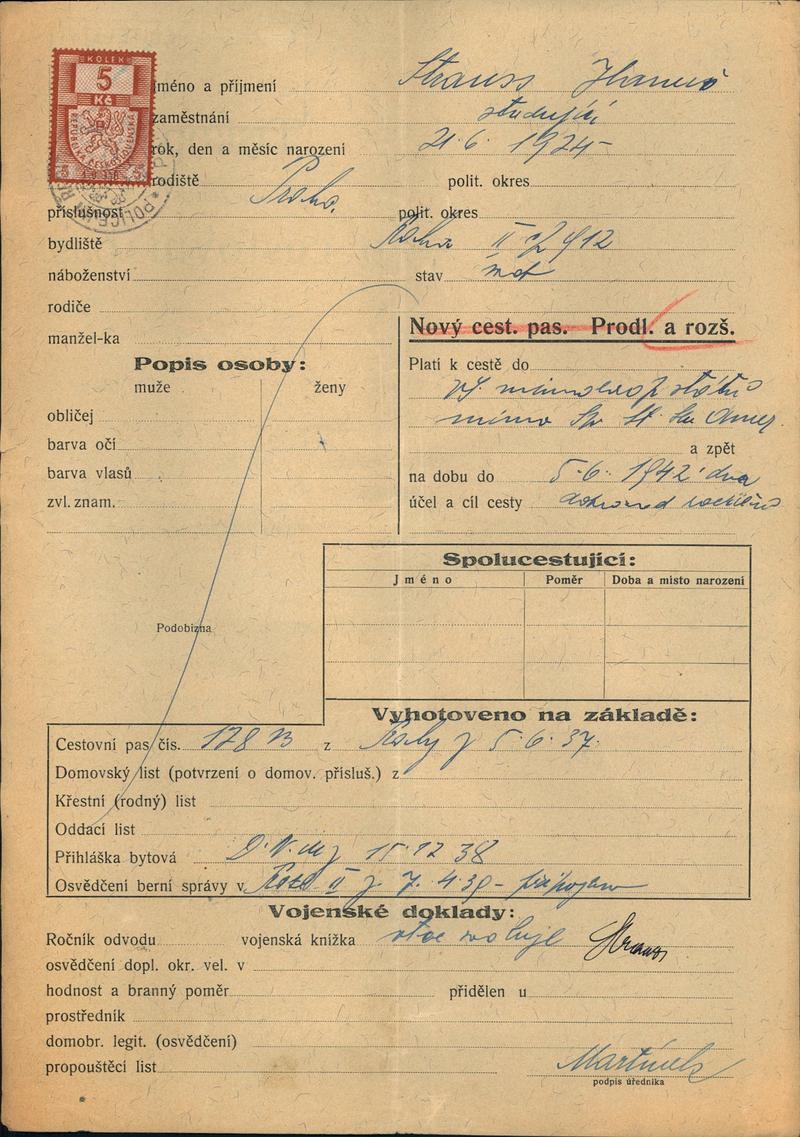 KOLEK
5
Kč
REPUBLIKA ČESKOSLOVENSKÁ
5 5
jméno a příjmení Strauss Hanuš
zaměstnání studující
rok, den a měsíc narození 21.6. 1924
rodiště Praha polit. okres
příslušnost polit. okres
bydliště Praha II čp 912
náboženství stav
rodiče
manžel-ka
Nový cest. pas. Prodl. a rozš.
Popis osoby:
muže ženy
obličej
barva očí
barva vlasů
zvl. znam.
Platí k cestě do
států
mimo Sp. St. Sev. Amer.
a zpět
na dobu do 5.6. 1942 dva
účel a cíl cesty
Podobizna
Spolucestující:
Jméno Poměr Doba a místo narození
Vyhotoveno na základě:
Cestovní pas čís. 128 z Prahy z 5.6.37.
Domovský list (potvrzení o domov. přísluš.) z
Křestní (rodný) list
Oddací list
Přihláška bytová z 15.12.38
Osvědčení berní správy v Praze II z 7.4.39 - připojeno
Vojenské doklady:
Ročník odvodu vojenská knížka otec svoluje Strauss
osvědčení dopl. okr. vel. v
hodnost a branný poměr přidělen u
prostředník
domobr. legit. (osvědčení)
propouštěcí list
podpis úředníka